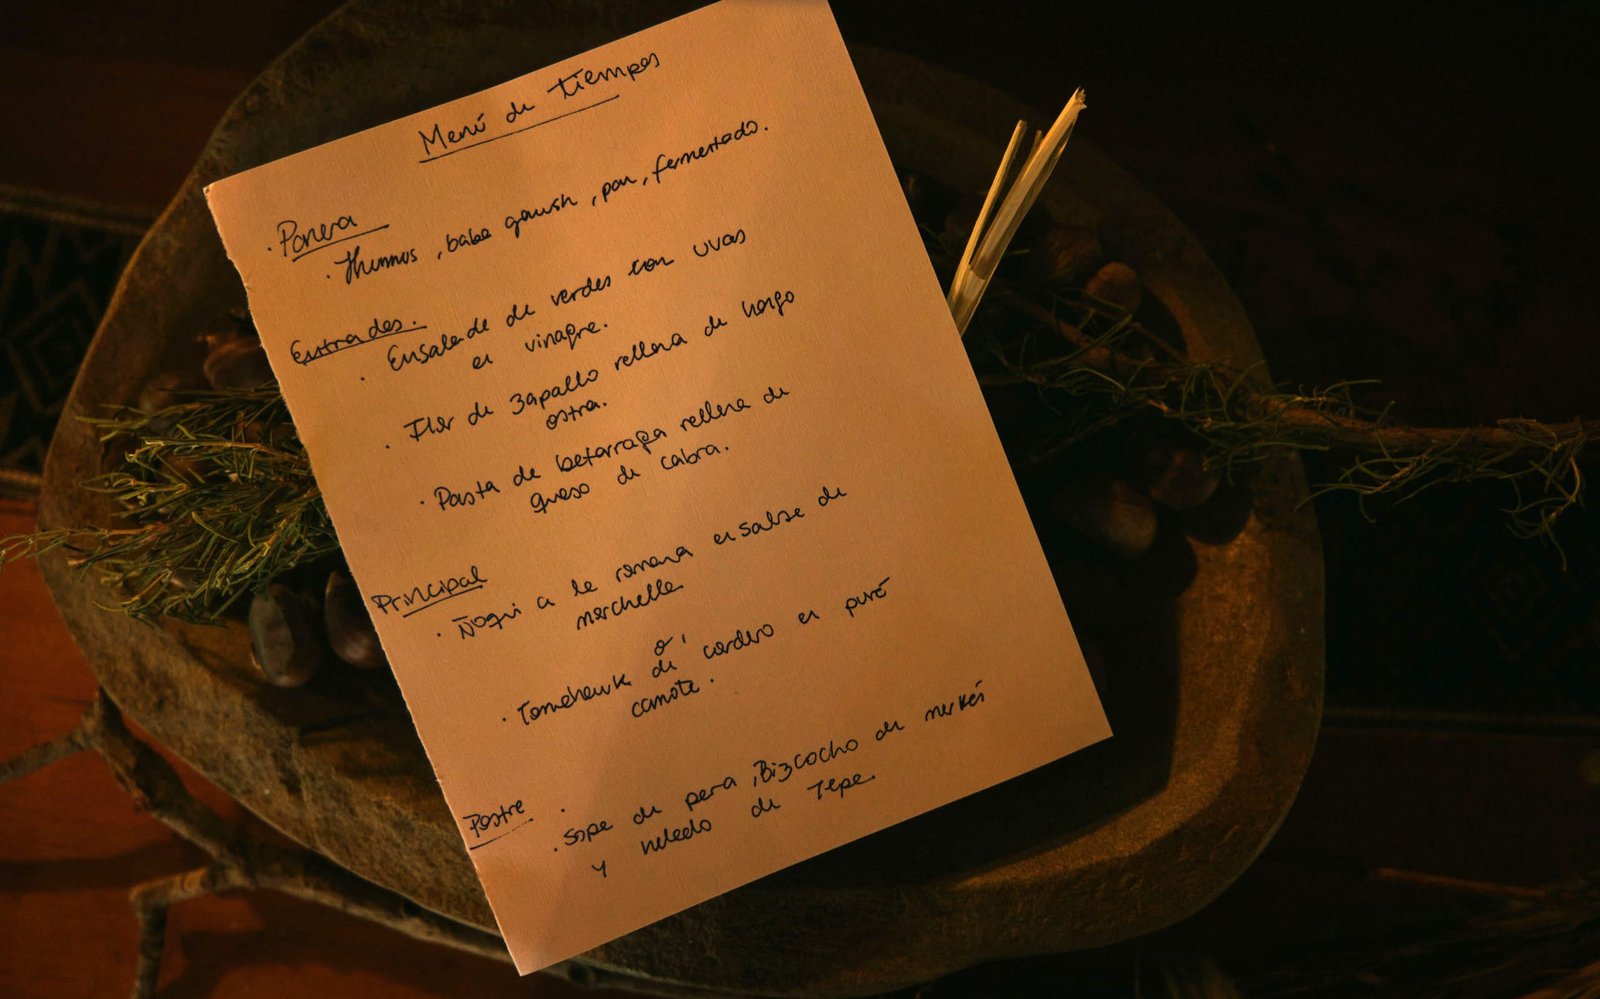 Menú de tiempos
· Panera
· Hummus, baba ganush, pan, fermentado.
Entradas.
· Ensalada de verdes con uvas
en vinagre.
· Flor de zapallo rellena de hongo
ostra.
· Pasta de betarraga rellena de
queso de cabra.
Principal
· Ñoqui a la romana en salsa de
morchella
o'
· Tomahawk de cordero en puré
camote.
Postre
· Sopa de pera, Bizcocho de merkén
y helado de Tepa.